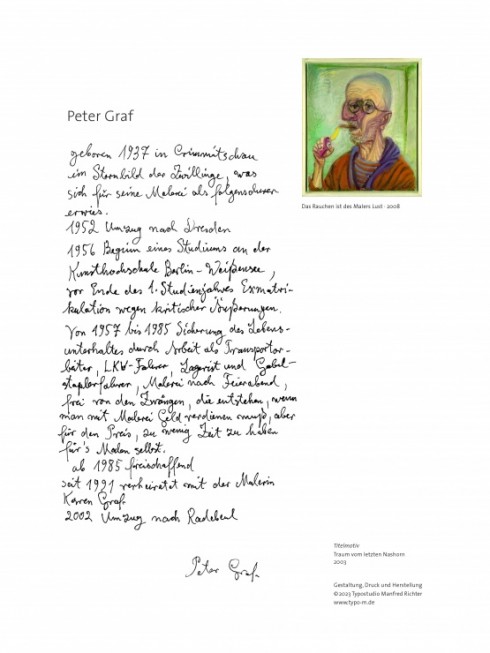 Peter Graf
geboren 1937 in Crimmitschau
im Sternbild der Zwillinge, was
sich für seine Malerei als folgenschwer
erwies.
1952 Umzug nach Dresden
1956 Beginn eines Studiums an der
Kunsthochschule Berlin-Weißensee,
vor Ende des 1. Studienjahres Exmatri-
kulation wegen kritischer Äußerungen.
Von 1957 bis 1985 Sicherung des Lebens-
unterhaltes durch Arbeit als Transportar-
beiter, LKW-Fahrer, Lagerist und Gabel-
staplerfahrer, Malerei nach Feierabend,
frei von den Zwängen, die entstehen, wenn
man mit Malerei Geld verdienen muß, aber
für den Preis, zu wenig Zeit zu haben
für's Malen selbst.
ab 1985 freischaffend
seit 1991 verheiratet mit der Malerin
Karen Graf.
2002 Umzug nach Radebeul
Peter Graf.
Das Rauchen ist des Malers Lust · 2008
Titelmotiv
Traum vom letzten Nashorn
2003
Gestaltung, Druck und Herstellung
©2023 Typostudio Manfred Richter
www.typo-m.de